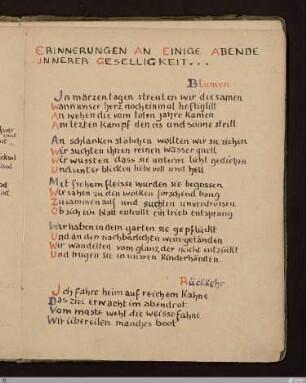 ERINNERUNGEN AN EINIGE ABENDE
INNERER GESELLIGKEIT...
Blumen
In märzentagen streuten wir die samen
Wann unser herz noch einmal heftig litt
An wehen die vom toten jahre kamen
Am lezten kampf den eis und sonne stritt
An schlanken stäbchen wollten wir sie ziehen
Wir suchten ihnen reinen wasser quell
Wir wussten dass sie unterm licht gediehen
Und unter blicken liebevoll und hell
Mit frohem fleisse wurden sie begossen
Wir sahen zu den wolken forschend bang
Zusammen auf und suchten unverdrossen
Ob sich ein blatt entrollt ein trieb entsprang
Wir haben in dem garten sie gepflückt
Und an den nachbarlichen weingeländen
Wir wandelten vom glanz der nacht entzückt
Und trugen sie in unsren kinderhänden
Rückkehr
Ich fahre heim auf reichem kahne
Das ziel erwacht im abendrot
Vom maste weht die weisse fahne
Wir übereilen manches boot